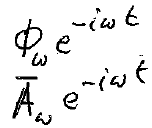 ϕ_ω e^{-iωt}
A̅_ω e^{-iωt}